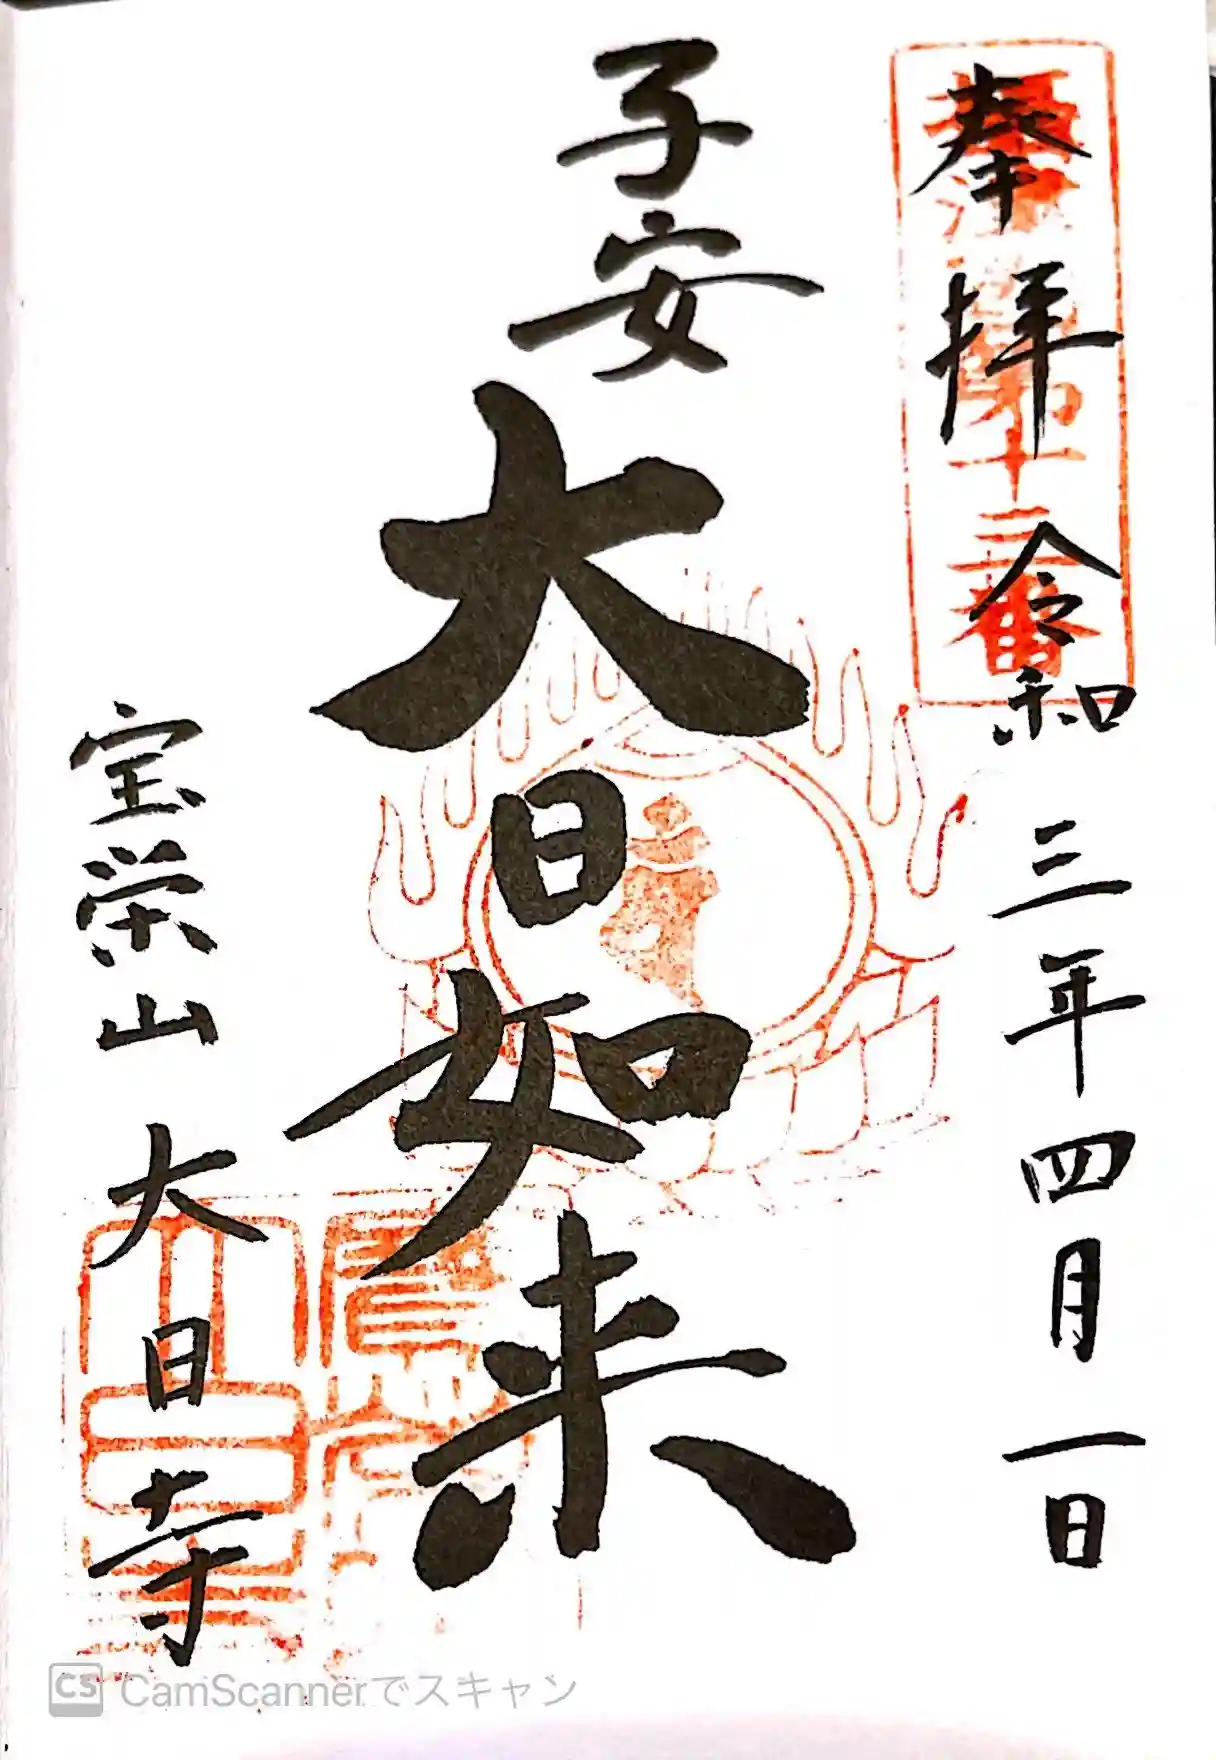 奉拝 令和三年四月一日
子安
大日如来
宝栄山 大日寺
CS CamScannerでスキャン